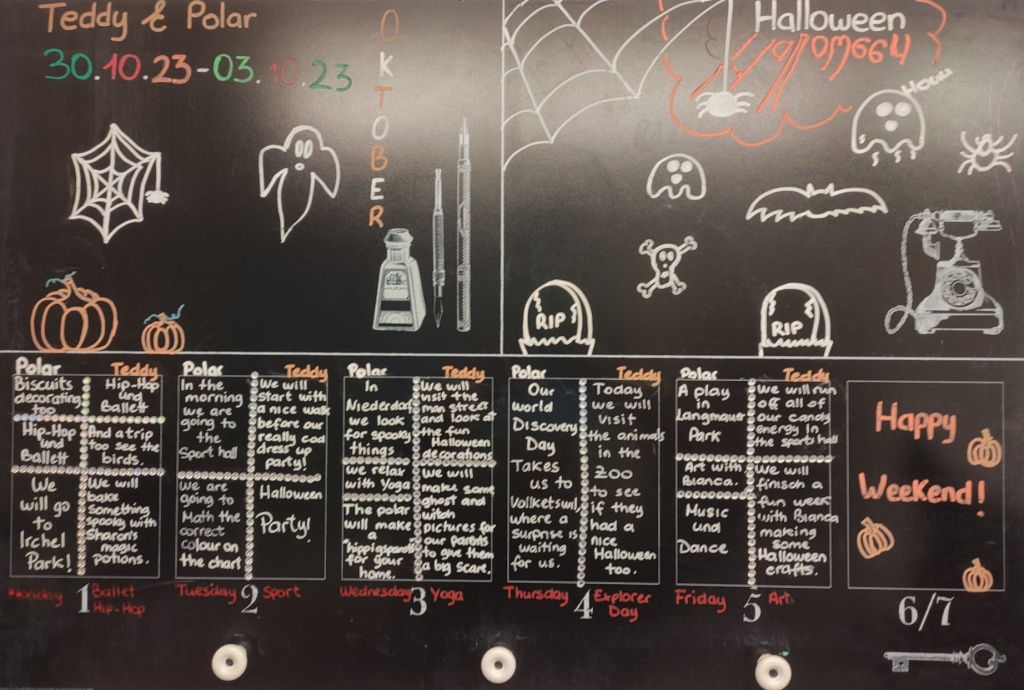 Teddy & Polar
30.10.23-03.10.23
OKTOBER
Halloween
RIP
RIP
Polar
Biscuits
decorating
too
Hip-Hop
und
Ballett
We
will go
to
Irchel
Park!
Teddy
Hip-Hop
und
Ballett
And a trip
too see the
birds.
We will
bake
Something
spooky with
Sharon's
magic
potions.
Monday
1
Ballet
Hip-Hop
Polar
In the
morning
we are
going to
the
Sport hall
We are
going to
Math the
correct
colour on
the chart
Teddy
We will
start with
a nice walk
before our
really cool
dress up
party!
Halloween
Party!
Tuesday
2
Sport
Polar
In
Niederdorf
we look
for spooky
things
We relax
with Yoga
The polar
will make
a
for your
home.
Teddy
We will
visit the
man street
and look at
the fun
Halloween
decorations
We will
make some
ghost and
witch
pictures for
our parents
to give them
a big scare.
Wednesday
3
Yoga
Polar
Our
world
Discovery
Day
Takes
us to
where a
surprise is
waiting
for us.
Teddy
Today
we will
Visit
the animals
in the
Zoo
to see
if they
had a
nice
Halloween
too.
Thursday
4
Explorer
Day
Polar
A play
in
Langmauer
Park
Art with
Bianca.
Music
und
Dance
Teddy
We will run
off all of
our candy
energy In
the sports hall
We will
finisch a
fun week
with Bianca
making
some
Halloween
crafts.
Friday
5
Art
Happy
Weekend!
6/7